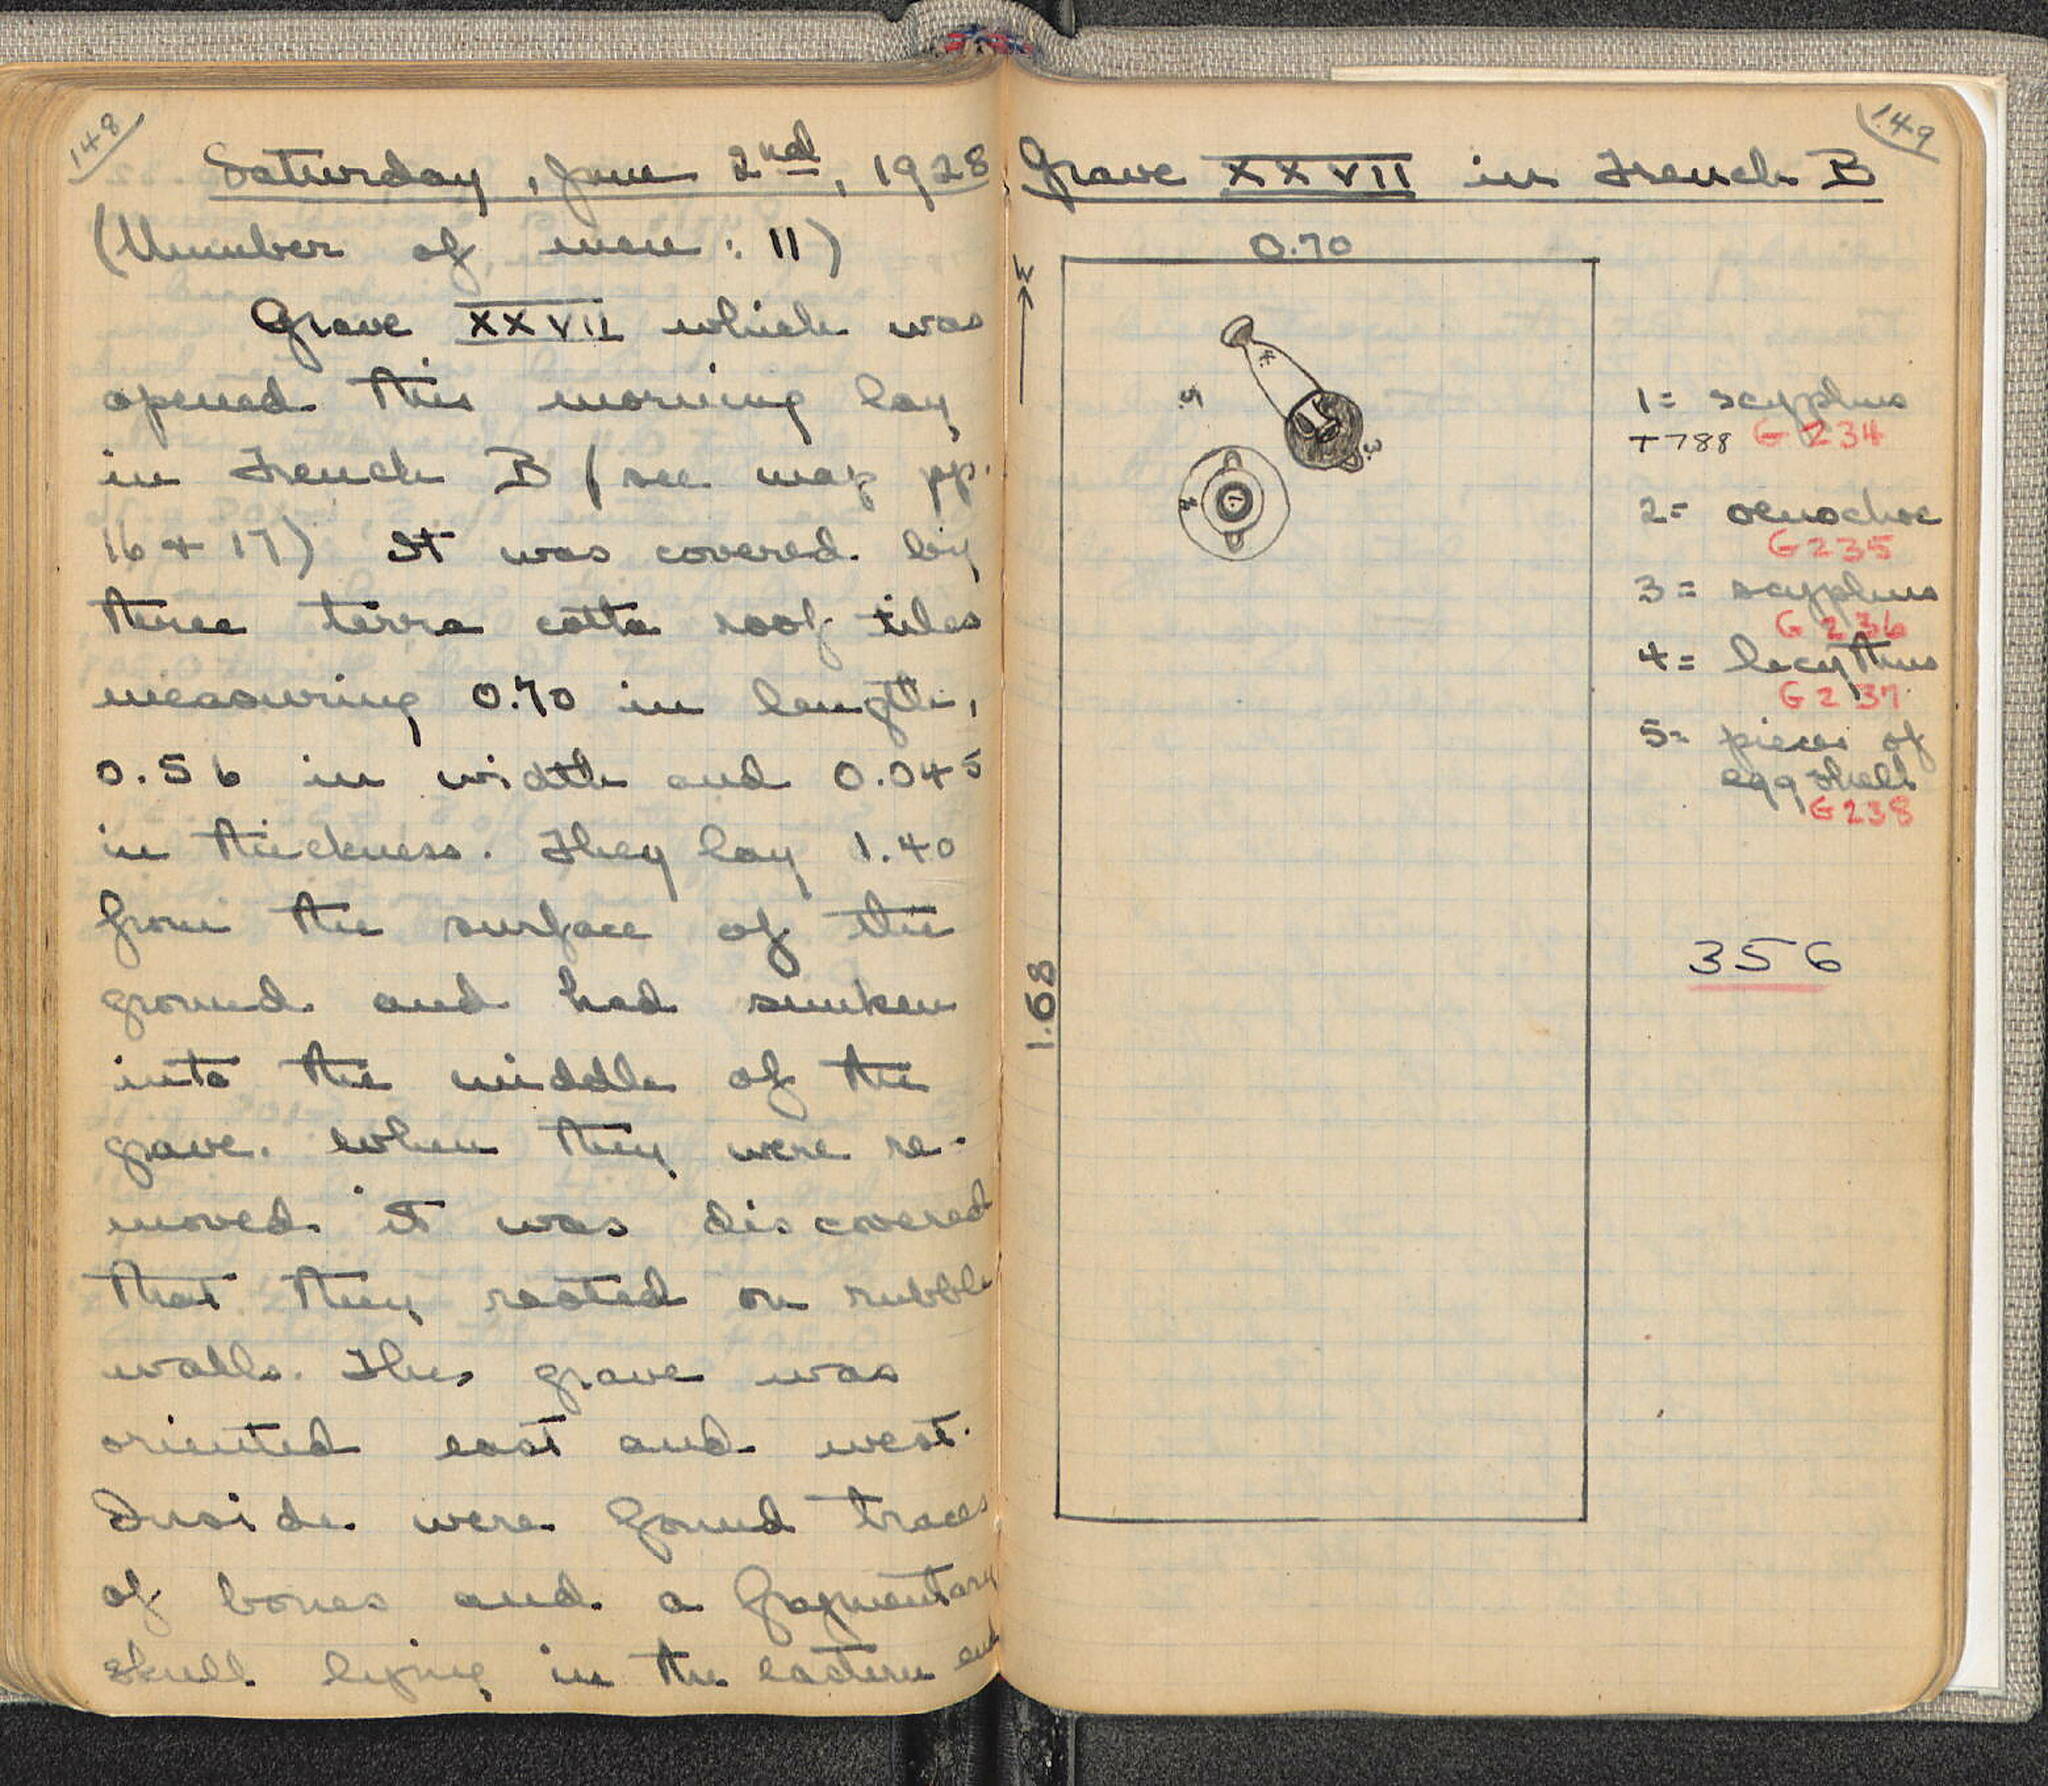 148
Saturday, June 2nd, 1928
(Number of men: 11)
Grave XXVII which was
opened this morning lay
in Trench B (see map pp.
16 + 17) It was covered by
three terra cotta roof tiles
measuring 0.70 in length,
0.56 in width and 0.045
in thickness. They lay 1.40
from the surface of the
ground and had sunken
into the middle of the
grave. When they were re-
moved it was discovered
that they rested on rubble
walls. This grave was
oriented east and west.
Inside were found traces
of bones and a fragmentary
skull lying in the eastern end
149
Grave XXVII in Trench B
0.70
1.68
5.
4.
3
1
1 = scyphus
T788 G 234
2 = oenochoe
G 235
3 = scyphus
G 236
4 = lecythus
G 237
5 = pieces of
egg shell
G 238
356